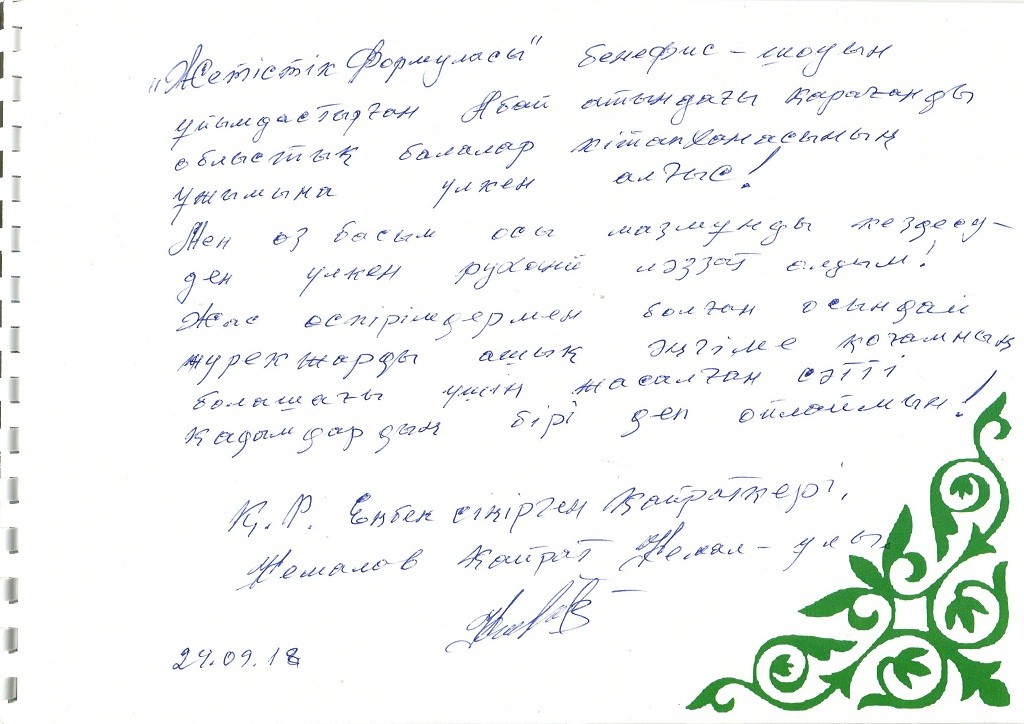 "Жетістік Формуласы" бенефис-шоуын
ұйымдастырған Абай атындағы Қарағанды
облыстық балалар кітапханасының
ұжымына үлкен алғыс!
Мен өз басым осы мазмұнды кездесу-
ден үлкен рухани ләззат алдым!
Жас өспірімдермен болған осындай
жүрекжарды ашық әңгіме қоғамның
болашағы үшін жасалған сәтті
қадымдардың бірі деп ойлаймын!
Қ.Р. Еңбек сіңірген қайраткері,
Кемалов Қайрат Кемал-ұлы.
24.09.18